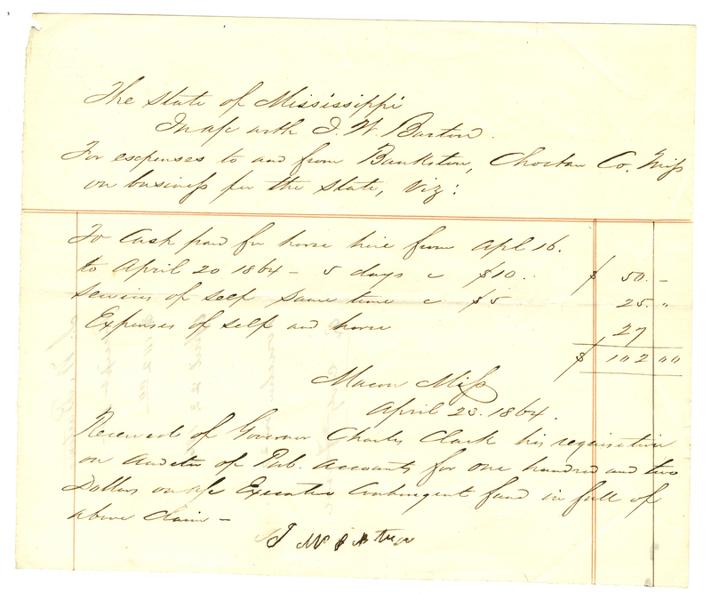 The State of Mississippi
In a/c with J. W. Barton.
For expenses to and from Bankston, Choctaw Co. Miss
on business for the State, Viz:
To Cash paid for horse hire from Apl 16.
to April 20 1864 - 5 days @ $10.. $ 50. -
Services of self same time @ $5 25. "
Expenses of self and horse 27
$ 102 00
Macon Miss
April 23. 1864.
Received of Governor Charles Clark his requisition
on Auditor of Pub. Accounts for one hundred and two
Dollars on a/c Executive Contingent fund in full of
above claim -
J W